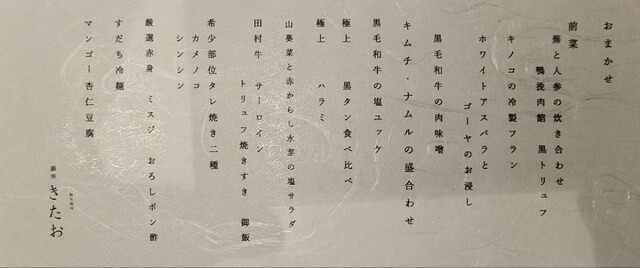 おまかせ
前菜
蕪と人参の炊き合わせ
鴨挽肉餡 黒トリュフ
キノコの冷製フラン
ホワイトアスパラと
ゴーヤのお浸し
黒毛和牛の肉味噌
キムチ・ナムルの盛合わせ
黒毛和牛の塩ユッケ
極上 黒タン食べ比べ
極上 ハラミ
山葵菜と赤からし水菜の塩サラダ
田村牛 サーロイン
トリュフ焼きすき 御飯
希少部位タレ焼き二種
カメノコ
シンシン
厳選赤身 ミスジ おろしポン酢
すだち冷麺
マンゴー杏仁豆腐
銀座
きたお